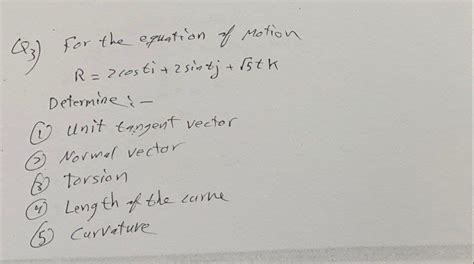 Q3) For the equation of Motion
R = 2costi + 2sintj + √5tk
Determine :-
① Unit tangent vector
② Normal vector
③ Torsion
④ Length of the curve
⑤ Curvature